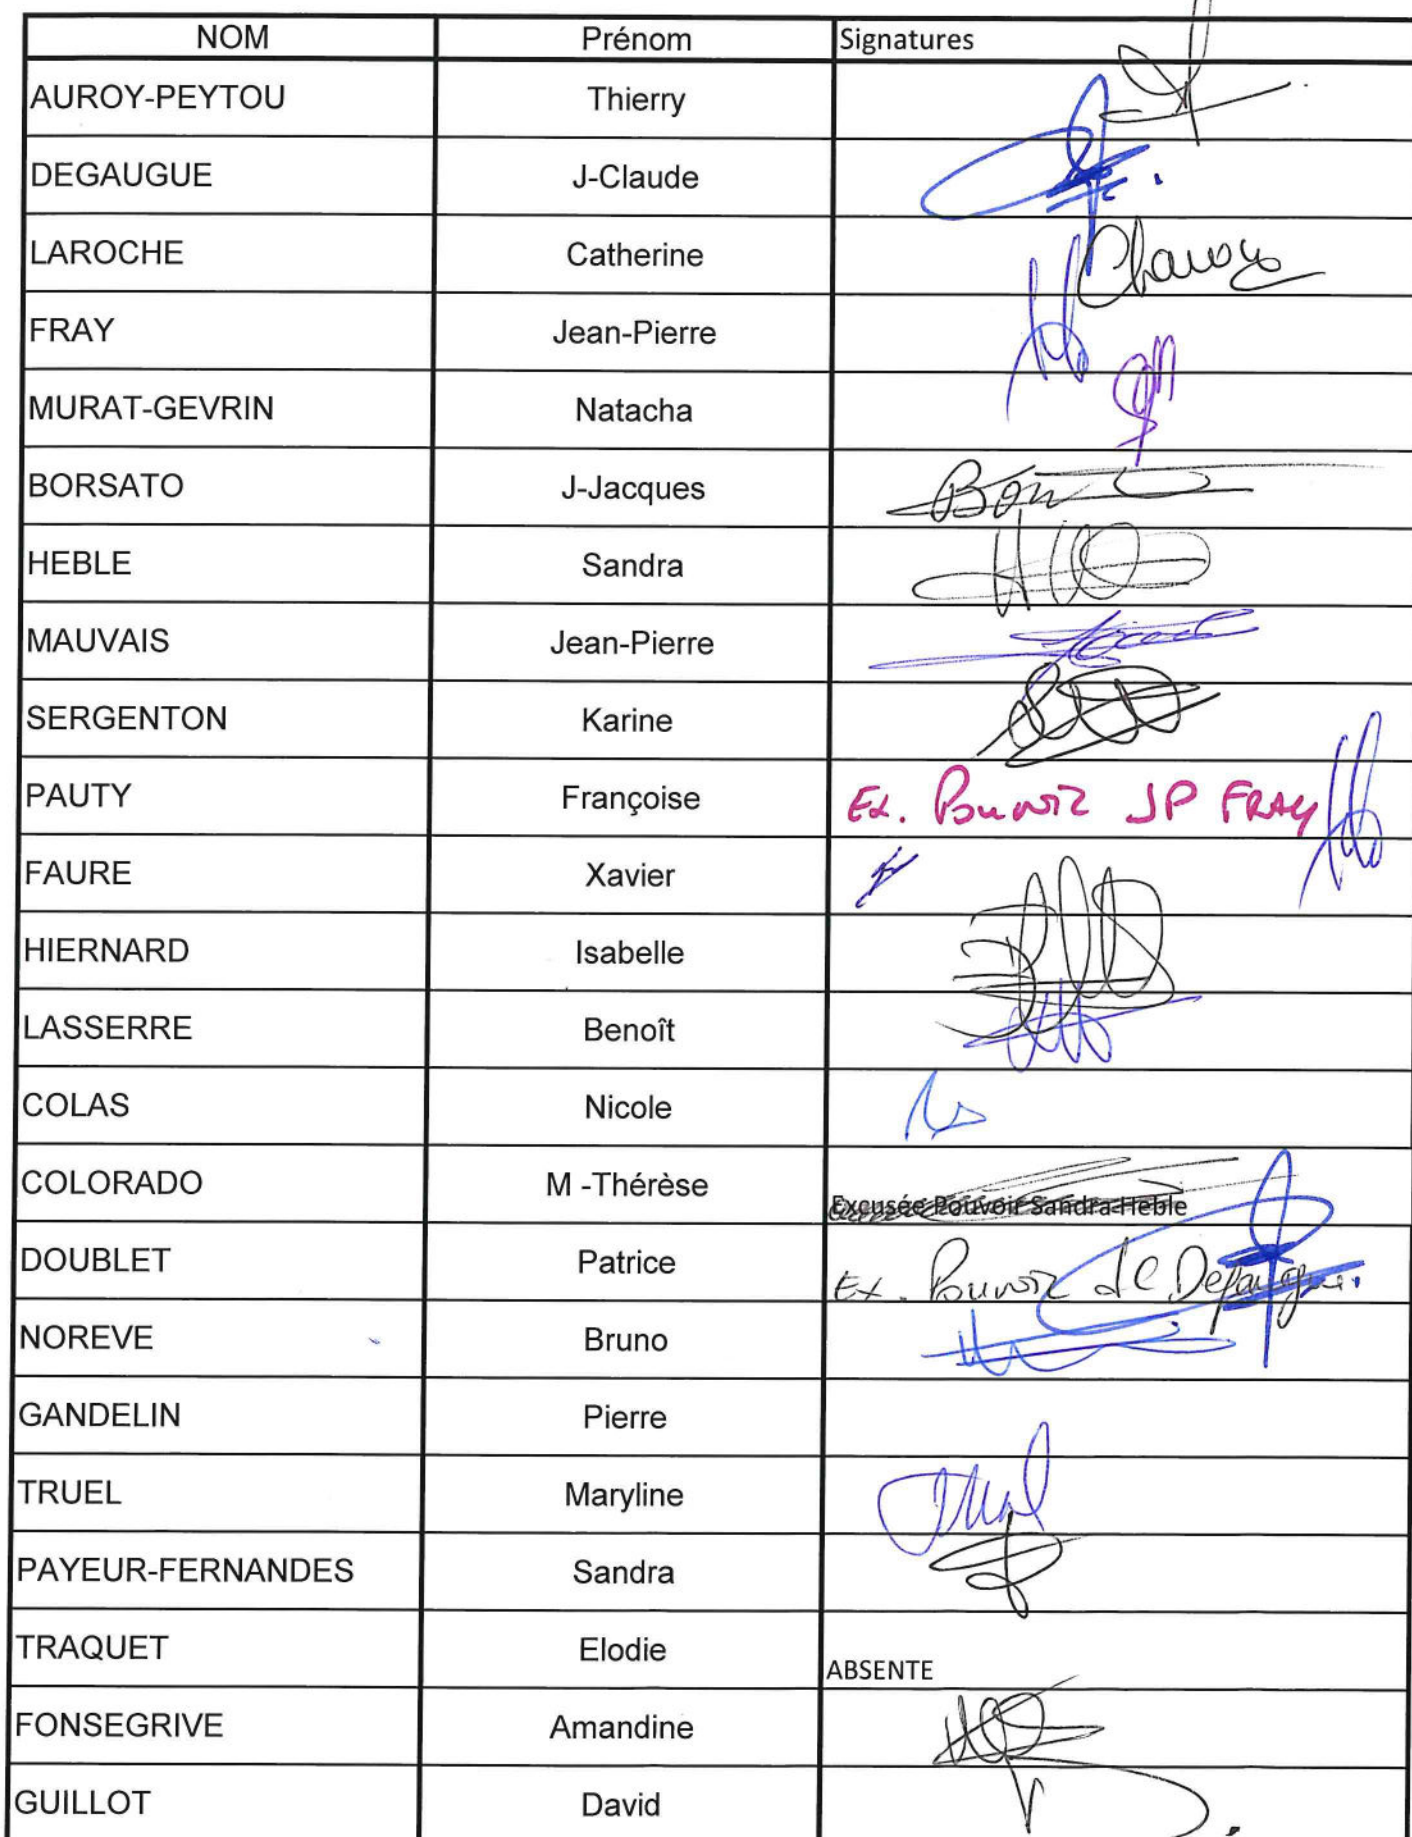 NOM Prénom Signatures
AUROY-PEYTOU Thierry
DEGAUGUE J-Claude
LAROCHE Catherine
FRAY Jean-Pierre
MURAT-GEVRIN Natacha
BORSATO J-Jacques
HEBLE Sandra
MAUVAIS Jean-Pierre
SERGENTON Karine
PAUTY Françoise Ex. Pouvoir JP FRAY
FAURE Xavier
HIERNARD Isabelle
LASSERRE Benoît
COLAS Nicole
COLORADO M -Thérèse Excusée Pouvoir Sandra Heble
DOUBLET Patrice Ex. Pouvoir JC Degaugue
NOREVE Bruno
GANDELIN Pierre
TRUEL Maryline
PAYEUR-FERNANDES Sandra
TRAQUET Elodie ABSENTE
FONSEGRIVE Amandine
GUILLOT David